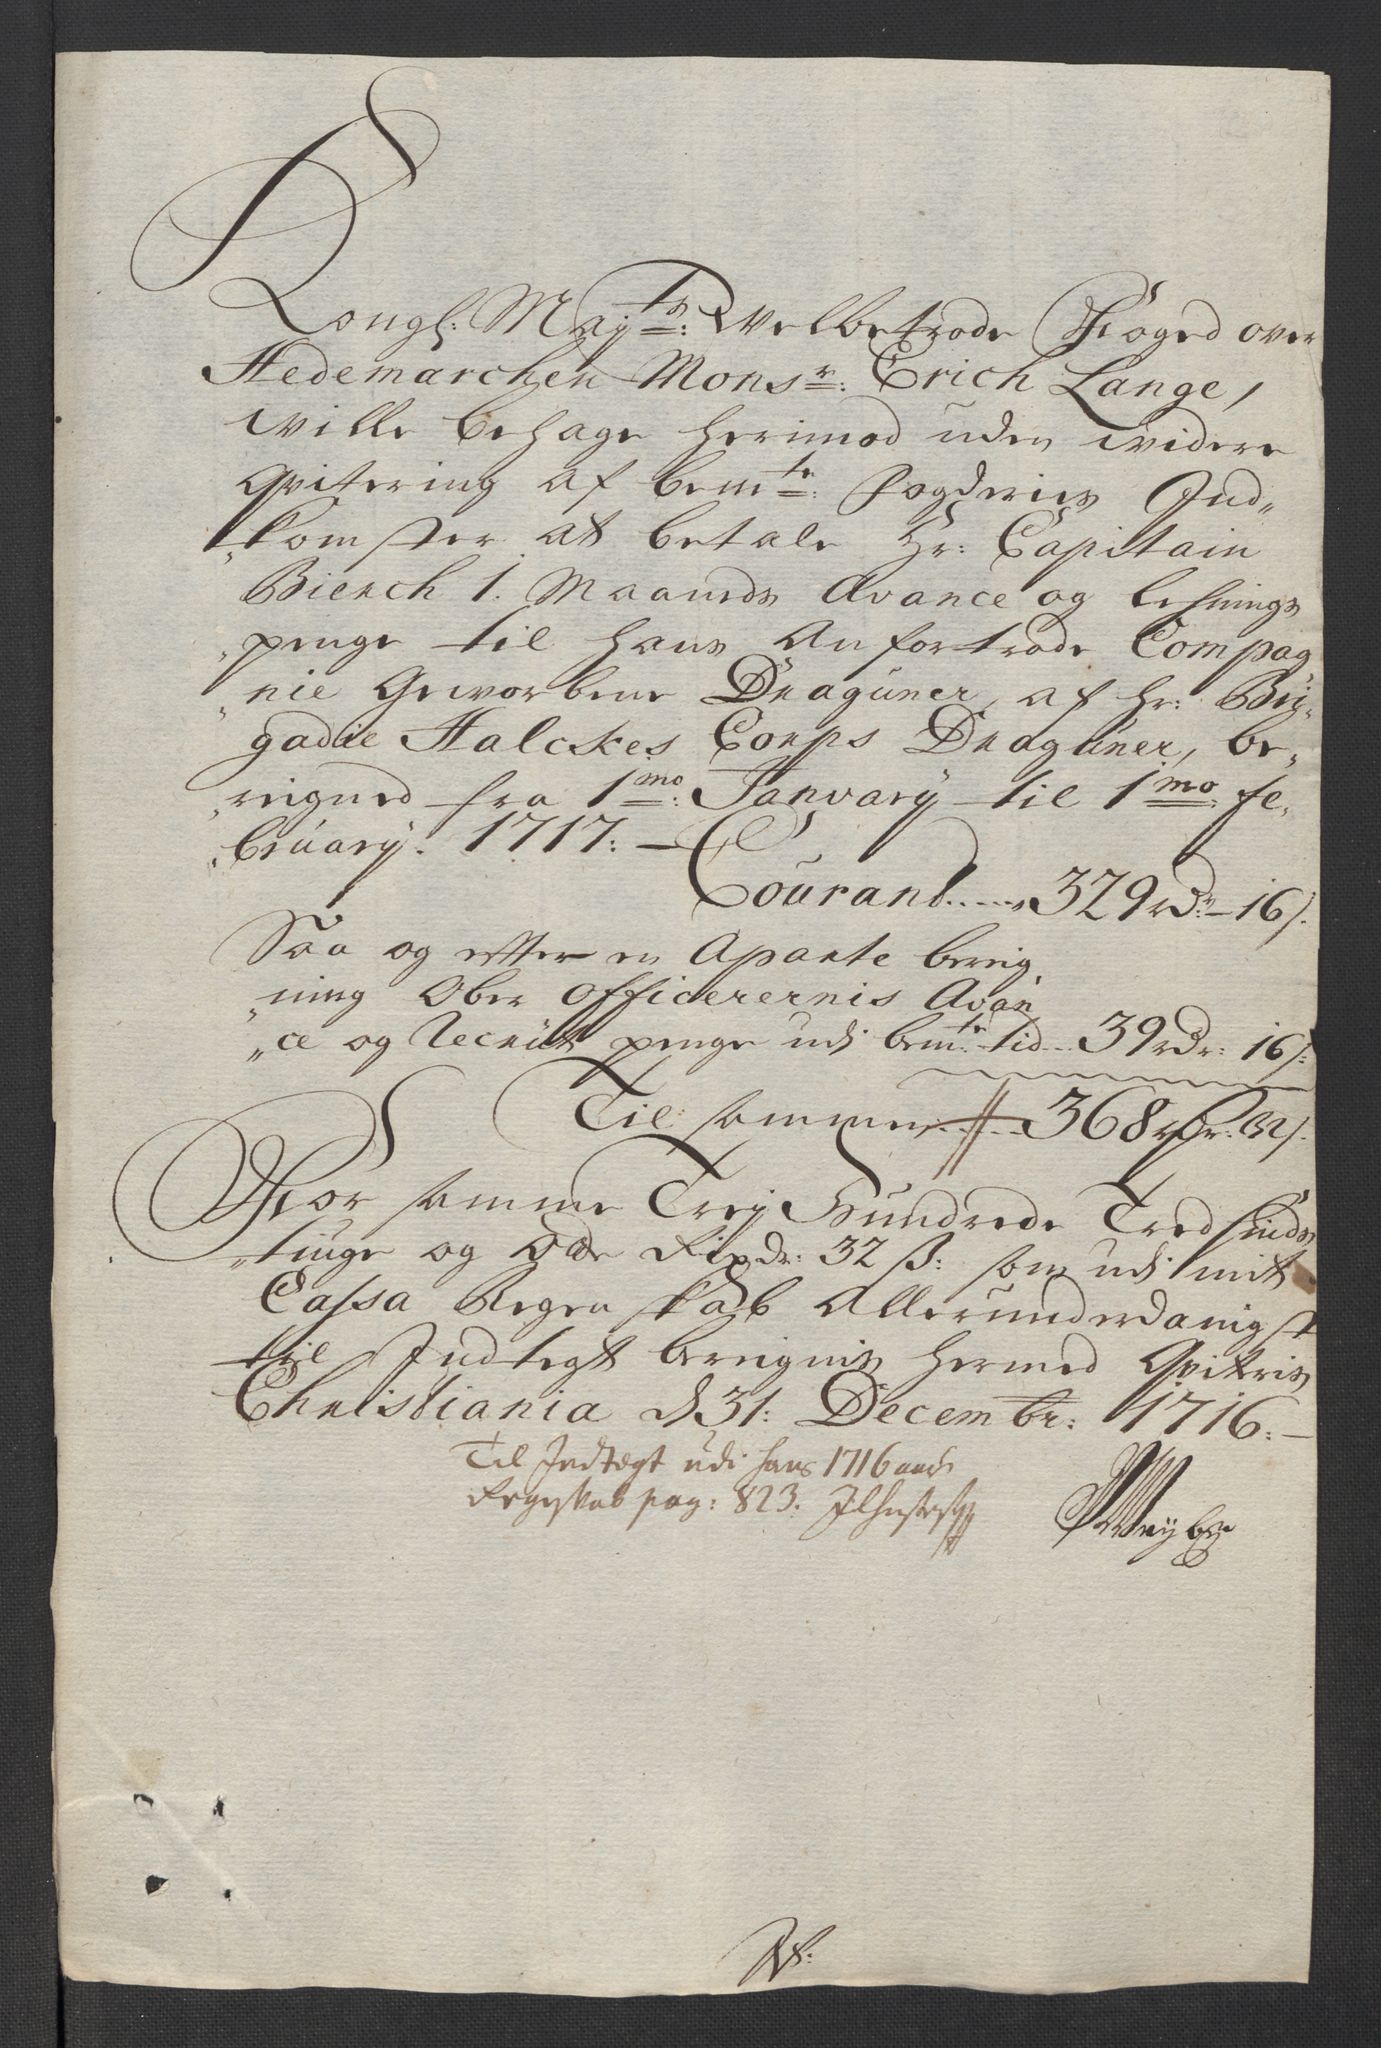 Kongl: Mayts: Welbetrode Foged over
Hedemarchen Monsr: Erich Lange,
Wille behage herimod uden widere
Qvitering af bemte: Fogderies Ind„
„komster at betale Hr: Capitain
Bierch 1. Maaneds Avance og Lehnings
„penge til hans Anfortrode Compag
„nie Geworbene Dragúner, af Hr: Bri„
gadie Halckes Corps Dragúner, be„
„reigned fra 1mo: Janvary til 1mo: Fe„
„bruary: 1717: —
Courant ..... 329 rdr — 16 s.
Saa og efter en Aparte bereig„
„ning Ober Officerernis Avan
„ce og Recrút penge udi bemte tid .. 39 rdr: 16 s:
Til sammen .... 368 rdr: 32 s.
For samme Trej Hundrede Tredsinds
„tiuge og Otte Rixdr: 32 s: som udi mit
Cassa Regenskab Allerunderdanigst
til Indtegt bereignis hermed Qviteris
Christiania d 31: Decembr: 1716: —
Til Indtegt udi hans 1716 aars
Regnskab pag: 823.
NB: